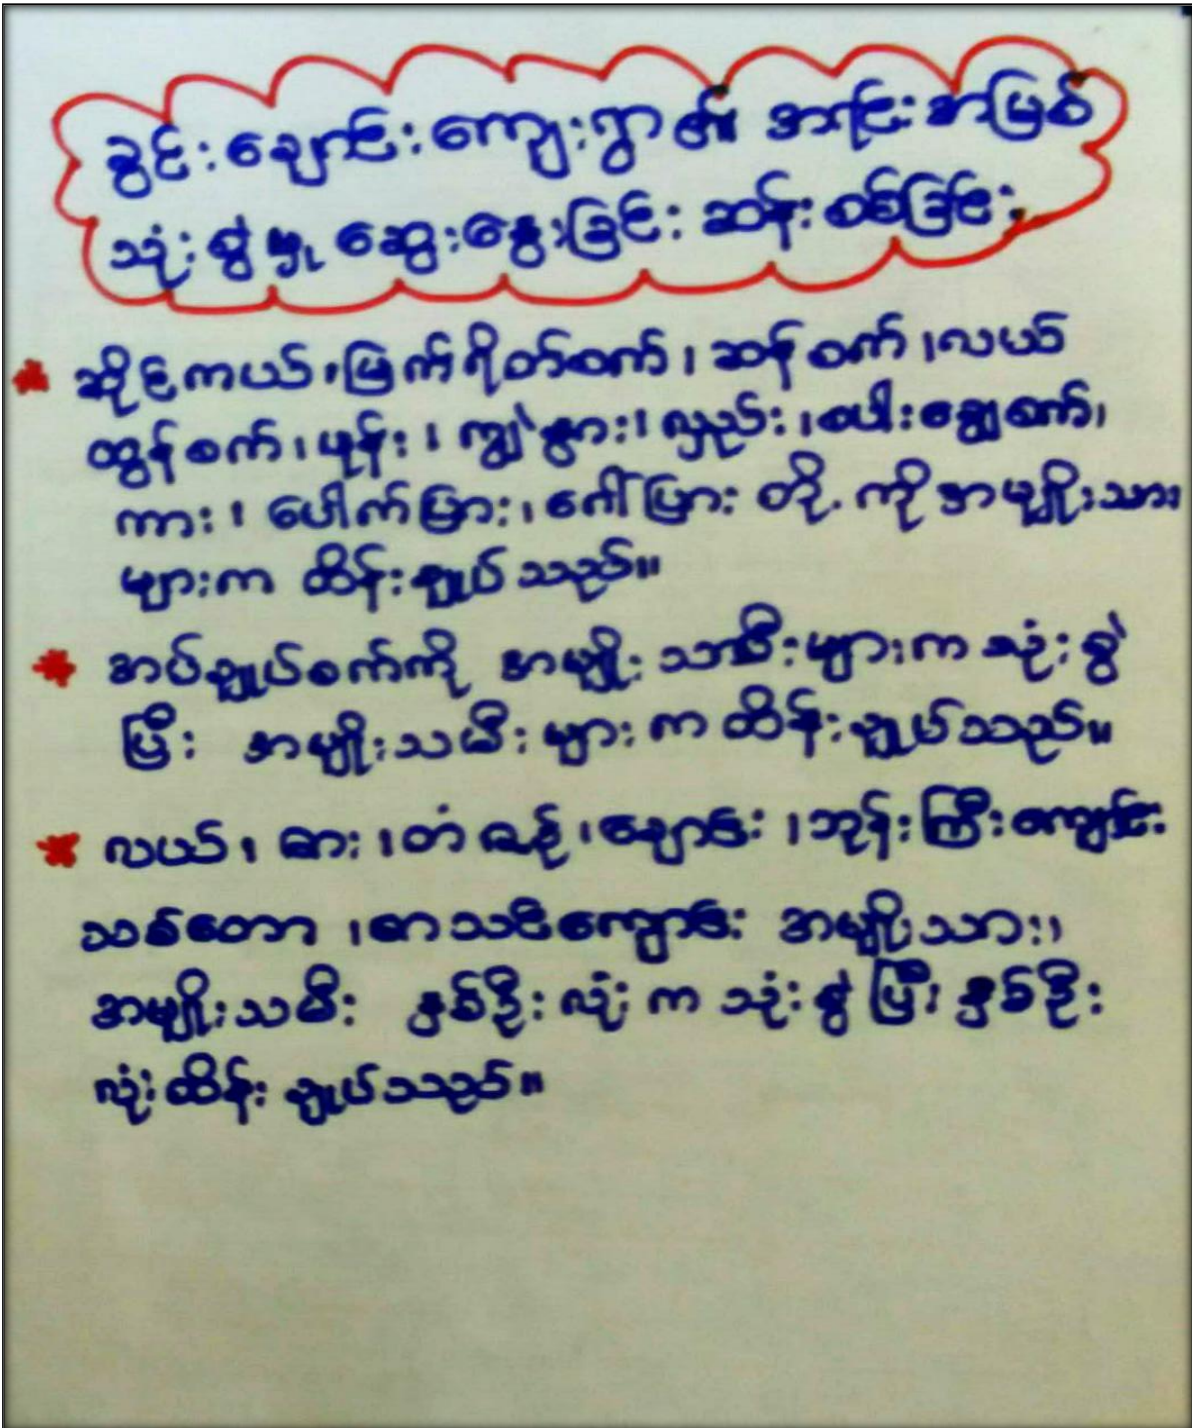 ခွင်းချောင်းကျေးရွာ၏ အရင်းအမြစ်
သုံးစွဲမှု ဆွေးနွေးခြင်း ဆန်းစစ်ခြင်း
ဆိုင်ကယ်၊ မြက်ရိတ်စက်၊ ဆန်စက်၊ လယ်
ထွန်စက်၊ ဖုန်း၊ ကျွဲနွား၊ လှည်း၊ စပါးချွေစက်၊
ကား၊ ပေါက်ပြား၊ ဂေါ်ပြား တို့ကို အမျိုးသား
များက ထိန်းချုပ်သည်။
အပ်ချုပ်စက်ကို အမျိုးသမီးများက သုံးစွဲ
ပြီး အမျိုးသမီးများက ထိန်းချုပ်သည်။
လယ်၊ ဓား၊ တံစဉ်၊ ချောင်း၊ ဘုန်းကြီးကျောင်း
သစ်တော၊ စာသင်ကျောင်း အမျိုးသား၊
အမျိုးသမီး နှစ်ဦးလုံးက သုံးစွဲပြီး နှစ်ဦး
လုံးထိန်းချုပ်သည်။